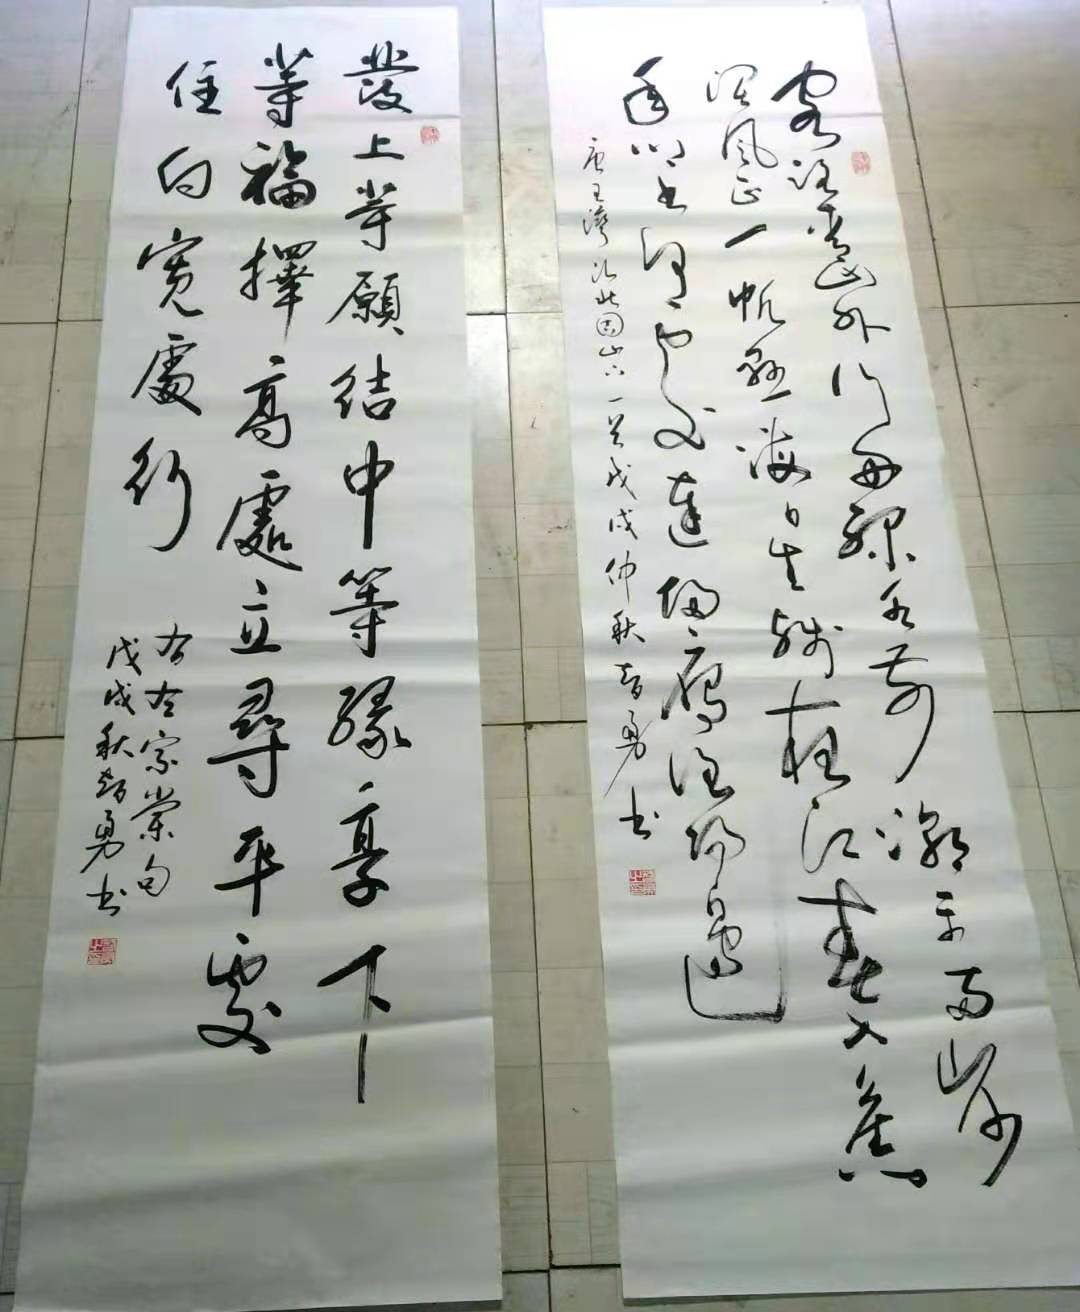 客路青山外行舟綠水前潮平兩岸
闊風正一帆懸海日生殘夜江春入舊
年鄉書何處達歸雁洛陽邊
唐王灣次北固山下一首戊戌仲秋智勇书
發上等願結中等緣享下
等福擇高處立尋平處
住向寬處行
右左宗棠句
戊戌秋智勇书